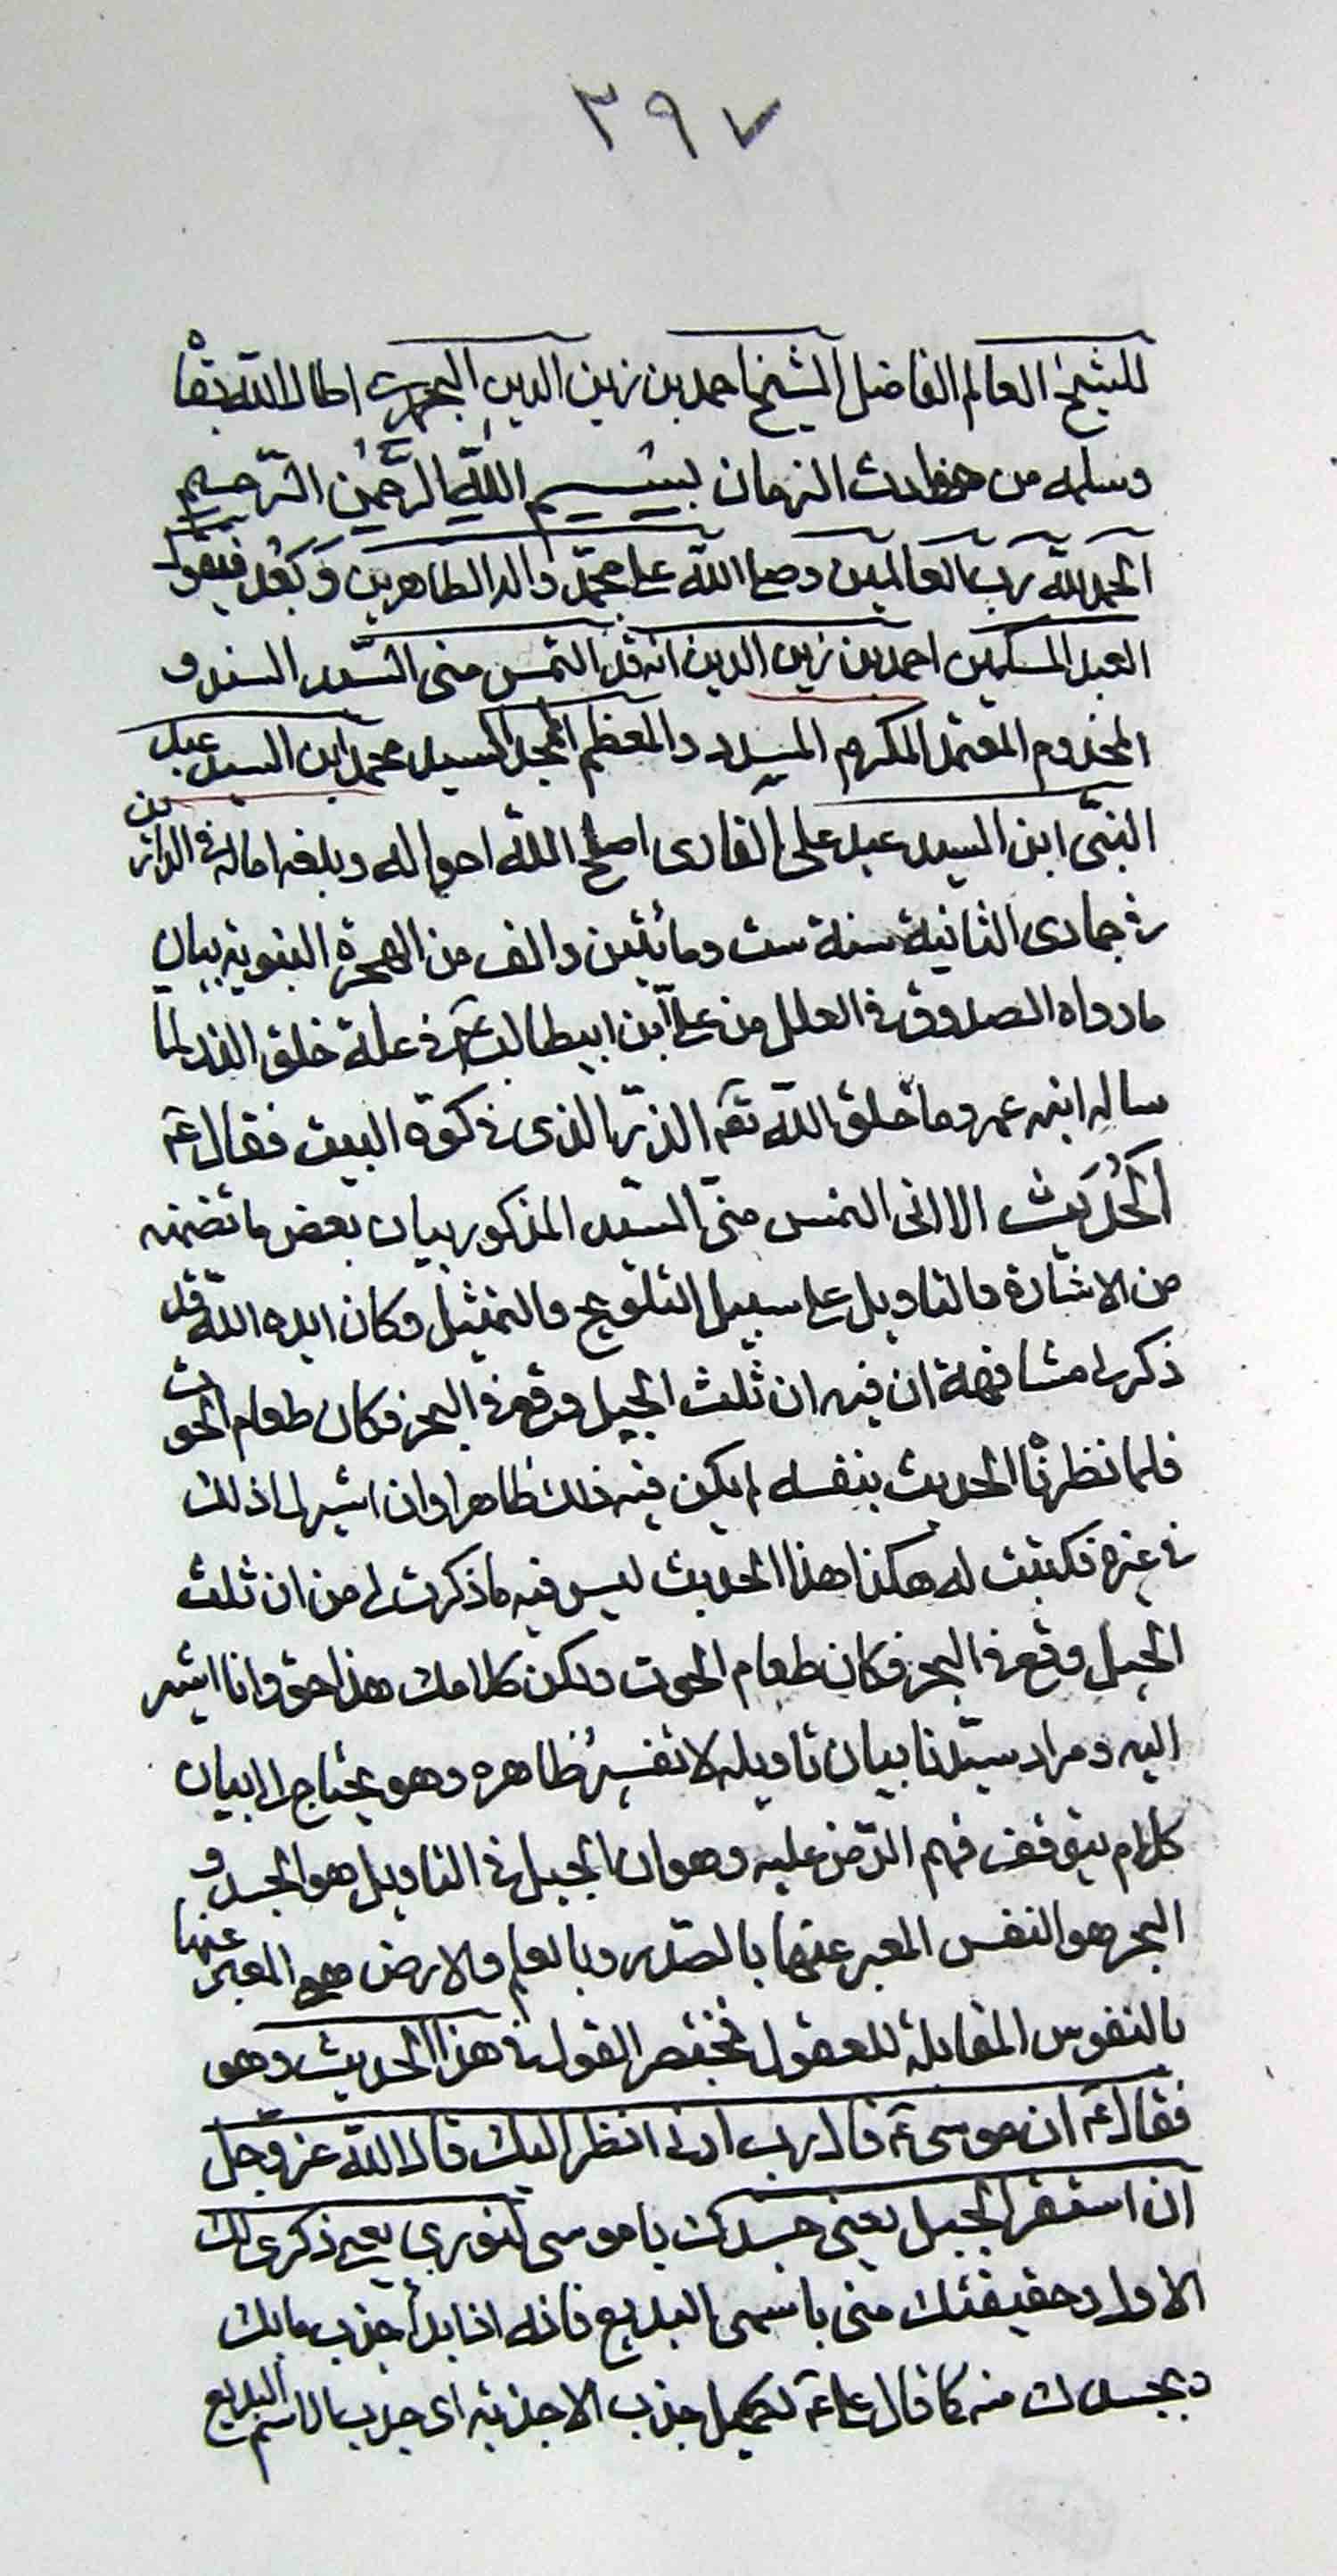 ٣٩٧
للشيخ العالم الفاضل الشيخ احمد بن زين الدين البحراني اطال الله بقاه
وسلمه من حوادث الزمان بسم الله الرحمن الرحيم
الحمد لله رب العالمين وصلى الله على محمد واله الطاهرين وبعد فيقول
العبد المسكين احمد بن زين الدين انه قد التمس مني السيد السند و
المخدوم المعتمد المكرم المسدد والمعظم الممجد السيد محمد ابن السيد عبد
النبي ابن السيد عبد علي القاري اصلح الله احواله وبلغه اماله في الدارين
في جمادى الثانية سنة ست ومائتين والف من الهجرة النبوية بيان
ما رواه الصدوق في العلل من علي ابن ابيطالب ع في علة خلق الذر لما
ساله ابنه عمر وما خلق الله تعه الذر الذى في كوة البيت فقال ع
الحديث الا انى التمس منى السيد المذكور بيان بعض ما تضمنه
من الاشارة والتاويل على سبيل التلويح والتمثيل وكان ايده الله قد
ذكر لى مشافهة ان فيه ان ثلث الجبل وقع في البحر فكان طعام الحوت
فلما نظرنا الحديث بنفسه لم يكن فيه ذلك ظاهرا وان اشير الى ذلك
في غيره فكتبت له هكذا هذا الحديث ليس فيه ما ذكرت لى من ان ثلث
الجبل وقع في البحر فكان طعام الحوت ولكن كلامك هذا حق وانا اشير
اليه ومراد سيدنا بيان تاويله لا تفسير ظاهره وهو يحتاج الى بيان
كلام يتوقف فهم الرمز عليه وهو ان الجبل في التاويل هو الجسد و
البحر هو النفس المعبر عنها بالصدر وبالعلم والارض هي المعبر عنها
بالنفوس المقابلة للعقول فنختصر القول في هذا الحديث وهو
فقال ع ان موسى ع قال رب ارني انظر اليك قال الله عز وجل
ان استقر الجبل يعنى جسدك يا موسى لنوري يعني ذكرى لك
الاول وحقيقتك منى باسمى البديع فانه اذا بدأ جذب مابك
وبجسدك منه كما قال على ع لكميل جذب الاحدية اى جذب بالاسم البديع